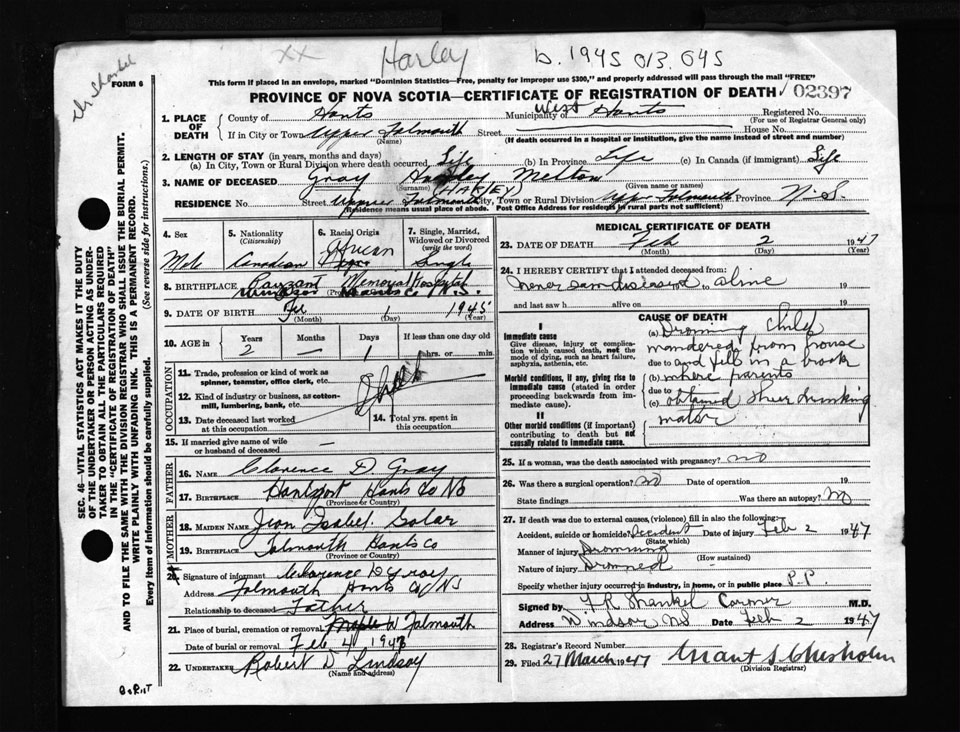 XX Harley b. 1945 013.045
Dr Shankel
FORM 6
This form if placed in an envelope, marked "Dominion Statistics—Free, penalty for improper use $300," and properly addressed will pass through the mail "FREE"
PROVINCE OF NOVA SCOTIA—CERTIFICATE OF REGISTRATION OF DEATH 02397
SEC. 46—VITAL STATISTICS ACT MAKES IT THE DUTY
OF THE UNDERTAKER OR PERSON ACTING AS UNDER-
TAKER TO OBTAIN ALL THE PARTICULARS REQUIRED
IN THE "CERTIFICATE OF REGISTRATION OF DEATH"
AND TO FILE THE SAME WITH THE DIVISION REGISTRAR WHO SHALL ISSUE THE BURIAL PERMIT.
WRITE PLAINLY WITH UNFADING INK. THIS IS A PERMANENT RECORD.
Every item of information should be carefully supplied. (See reverse side for instructions.)
1. PLACE OF DEATH
County of Hants Municipality of West Hants Registered No.
(For use of Registrar General only)
If in City or Town Upper Falmouth Street House No.
(Name) (If death occurred in a hospital or institution, give the name instead of street and number)
2. LENGTH OF STAY (in years, months and days)
(a) In City, Town or Rural Division where death occurred Life (b) In Province Life (c) In Canada (if immigrant) Life
3. NAME OF DECEASED Gray Harley Melton
(Surname) (HARLEY) (Given name or names)
RESIDENCE No. Street Upper Falmouth City, Town or Rural Division Upp Falmouth Province N.S.
(Residence means usual place of abode. Post Office Address for residents in rural parts not sufficient)
4. Sex
Male
5. Nationality
(Citizenship)
Canadian
6. Racial Origin
African
7. Single, Married,
Widowed or Divorced
(write the word)
Single
8. BIRTHPLACE Payzant Memorial Hospital
Windsor Hants Co N.S.
9. DATE OF BIRTH Feb 1 1945
(Month) (Day) (Year)
10. AGE in
Years Months Days If less than one day old
2 — 1 hrs. or min.
OCCUPATION
11. Trade, profession or kind of work as
spinner, teamster, office clerk, etc.
12. Kind of industry or business, as cotton-
mill, lumbering, bank, etc.
13. Date deceased last worked
at this occupation
14. Total yrs. spent in
this occupation
15. If married give name of wife
or husband of deceased —
FATHER
16. NAME Clarence D. Gray
17. BIRTHPLACE Hantsport Hants Co NS
(Province or Country)
MOTHER
18. MAIDEN NAME Jean Isabel
19. BIRTHPLACE Falmouth Hants Co
(Province or Country)
20. Signature of informant Clarence D Gray
Address Falmouth Hants Co NS
Relationship to deceased Father
21. Place of burial, cremation or removal W Falmouth
Date of burial or removal Feb 4 1947
22. UNDERTAKER Robert D Lindsay
(Name and address)
MEDICAL CERTIFICATE OF DEATH
23. DATE OF DEATH Feb 2 1947
(Month) (Day) (Year)
24. I HEREBY CERTIFY that I attended deceased from:
never saw diseased alive 19
and last saw h alive on 19
CAUSE OF DEATH
I
Immediate cause
Give disease, injury or complica-
tion which caused death, not the
mode of dying, such as heart failure,
asphyxia, asthenia, etc.
Morbid conditions, if any, giving rise to
immediate cause (stated in order
proceeding backwards from im-
mediate cause).
II
Other morbid conditions (if important)
contributing to death but not
causally related to immediate cause.
(a) Drowning Child
wandered from house
due to and fell in a brook
(b) where parents
due to
(c) obtained their drinking
water
25. If a woman, was the death associated with pregnancy? no
26. Was there a surgical operation? no Date of operation 19
State findings Was there an autopsy? no
27. If death was due to external causes, (violence) fill in also the following:
Accident, suicide or homicide? Accident Date of injury Feb 2 1947
(State which)
Manner of injury Drowning
(How sustained)
Nature of injury Drowned
Specify whether injury occurred in industry, in home, or in public place P.P.
Signed by F R Shankel Coroner M.D.
Address Windsor NS Date Feb 2 1947
28. Registrar's Record Number
29. Filed 27 March 1947 Grant S Chisholm
(Division Registrar)